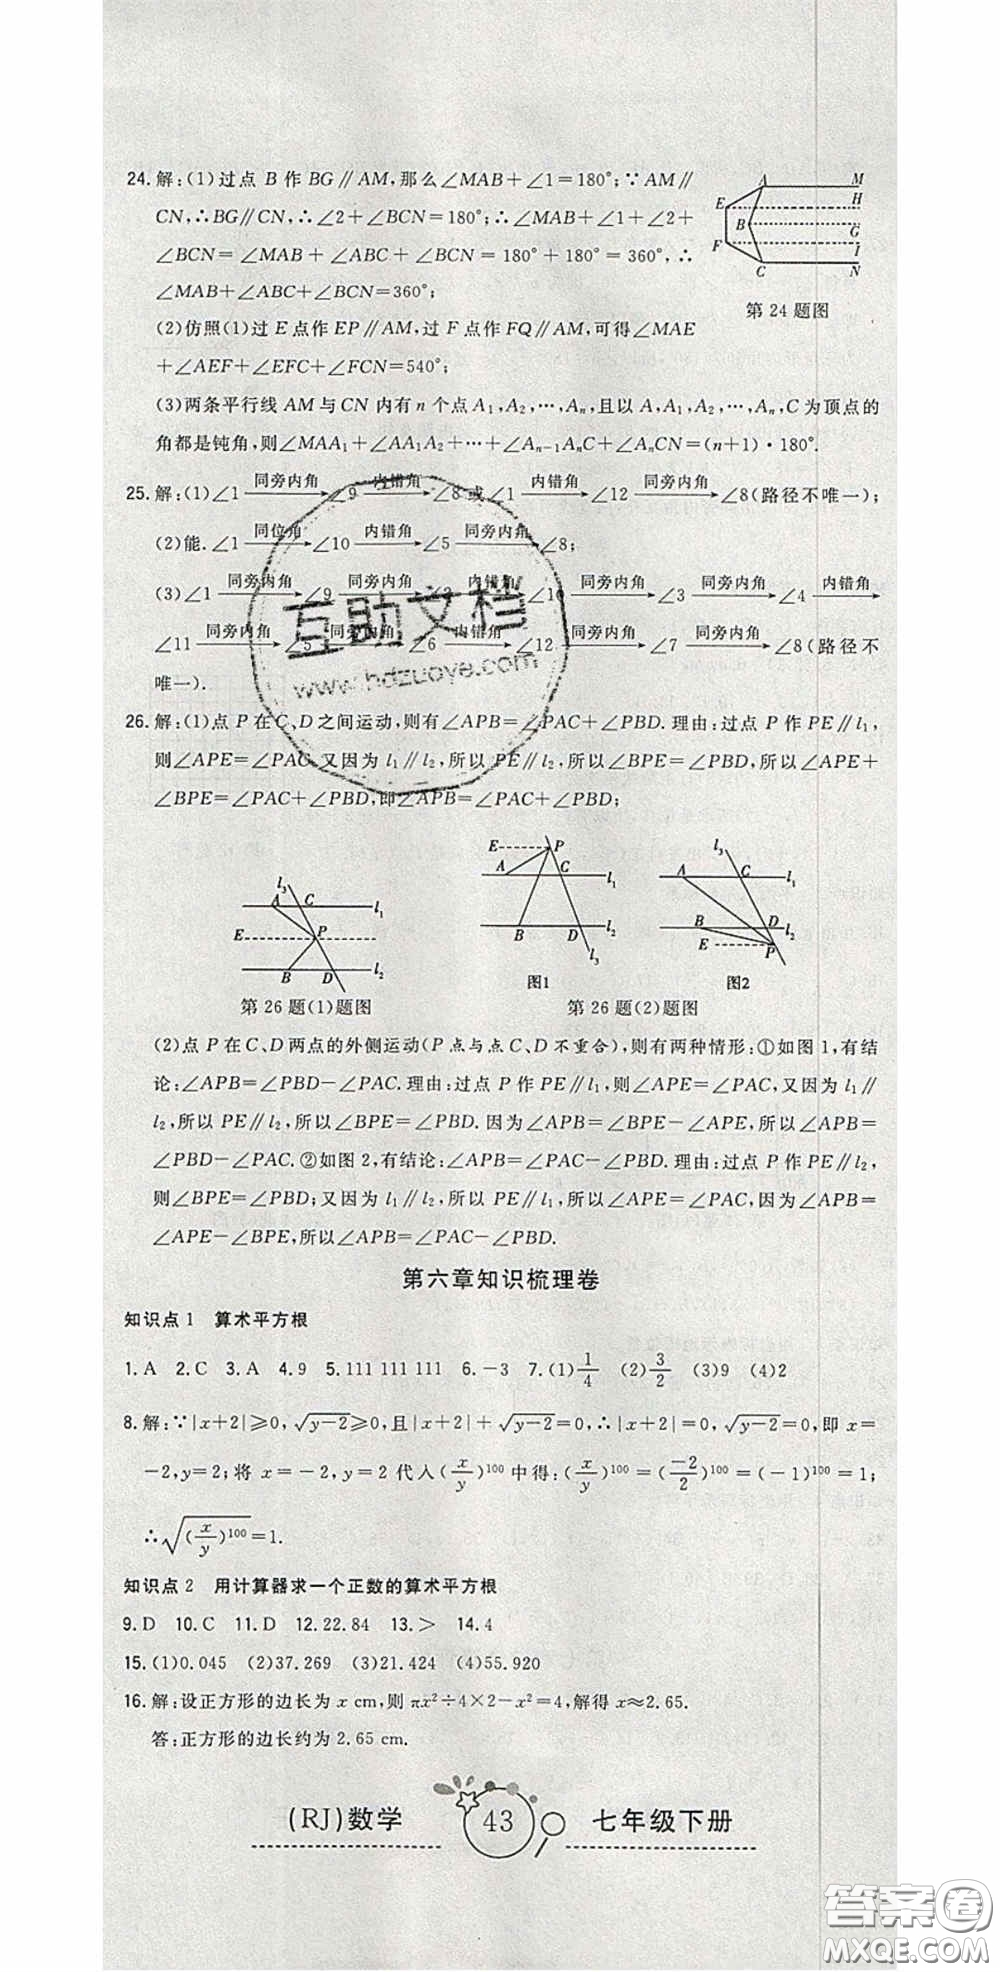 24.解:(1)过点 B 作 BG∥AM,那么∠MAB+∠1=180°;∵AM∥
CN,∴BG∥CN,∴∠2+∠BCN=180°;∴∠MAB+∠1+∠2+
∠BCN=∠MAB+∠ABC+∠BCN=180°+180°=360°,∴
∠MAB+∠ABC+∠BCN=360°;
A M
E H
B G
F I
C N
第 24 题图
(2)仿照(1)过 E 点作 EP∥AM,过 F 点作 FQ∥AM,可得∠MAE
+∠AEF+∠EFC+∠FCN=540°;
(3)两条平行线 AM 与 CN 内有 n 个点 A₁,A₂,…,Aₙ,且以 A,A₁,A₂,…,Aₙ,C 为顶点的
角都是钝角,则∠MAA₁+∠AA₁A₂+…+∠Aₙ₋₁AₙC+∠AₙCN=(n+1)·180°.
25.解:(1)∠1 —同旁内角→ ∠9 —内错角→ ∠8 或∠1 —内错角→ ∠12 —同旁内角→ ∠8(路径不唯一);
(2)能.∠1 —同位角→ ∠10 —内错角→ ∠5 —同旁内角→ ∠8;
(3)∠1 —同旁内角→ ∠9 —同旁内角→ —同旁内角→ ∠10 —同旁内角→ ∠3 —同旁内角→ ∠4 —内错角→
∠11 —同旁内角→ ∠5 —同旁内角→ ∠6 —内错角→ ∠12 —同旁内角→ ∠7 —同旁内角→ ∠8(路径不
唯一).
26.解:(1)点 P 在 C、D 之间运动,则有∠APB=∠PAC+∠PBD.理由:过点 P 作 PE∥l₁,
则∠APE=∠PAC.又因为 l₁∥l₂,所以 PE∥l₂,所以∠BPE=∠PBD,所以∠APE+
∠BPE=∠PAC+∠PBD,即∠APB=∠PAC+∠PBD;
l₃ A C l₁
E P
B D l₂
第 26 题(1)题图
E P
A C l₁
B D l₂
l₃
图1
l₃
A C l₁
B D l₂
E P
图2
第 26 题(2)题图
(2)点 P 在 C、D 两点的外侧运动(P 点与点 C、D 不重合),则有两种情形:①如图 1,有结
论:∠APB=∠PBD-∠PAC.理由:过点 P 作 PE∥l₁,则∠APE=∠PAC,又因为 l₁∥
l₂,所以 PE∥l₂,所以∠BPE=∠PBD.因为∠APB=∠BPE-∠APE,所以∠APB=
∠PBD-∠PAC.②如图 2,有结论:∠APB=∠PAC-∠PBD.理由:过点 P 作 PE∥l₂,
则∠BPE=∠PBD;又因为 l₁∥l₂,所以 PE∥l₁,所以∠APE=∠PAC,因为∠APB=
∠APE-∠BPE,所以∠APB=∠PAC-∠PBD.
第六章知识梳理卷
知识点 1 算术平方根
1.A 2.C 3.A 4.9 5.111 111 111 6.-3 7.(1)1/4 (2)3/2 (3)9 (4)2
8.解:∵|x+2|≥0,√(y-2)≥0,且|x+2|+√(y-2)=0,∴|x+2|=0,√(y-2)=0,即 x=
-2,y=2;将 x=-2,y=2 代入(x/y)¹⁰⁰中得:(x/y)¹⁰⁰=(-2/2)¹⁰⁰=(-1)¹⁰⁰=1;
∴√((x/y)¹⁰⁰)=1.
知识点 2 用计算器求一个正数的算术平方根
9.D 10.C 11.D 12.22.84 13.> 14.4
15.(1)0.045 (2)37.269 (3)21.424 (4)55.920
16.解:设正方形的边长为 x cm,则 πx²÷4×2-x²=4,解得 x≈2.65.
答:正方形的边长约为 2.65 cm.
(RJ)数学 43 七年级下册
互助文档
www.hdzuoye.com
答案卷
MXQE.COM